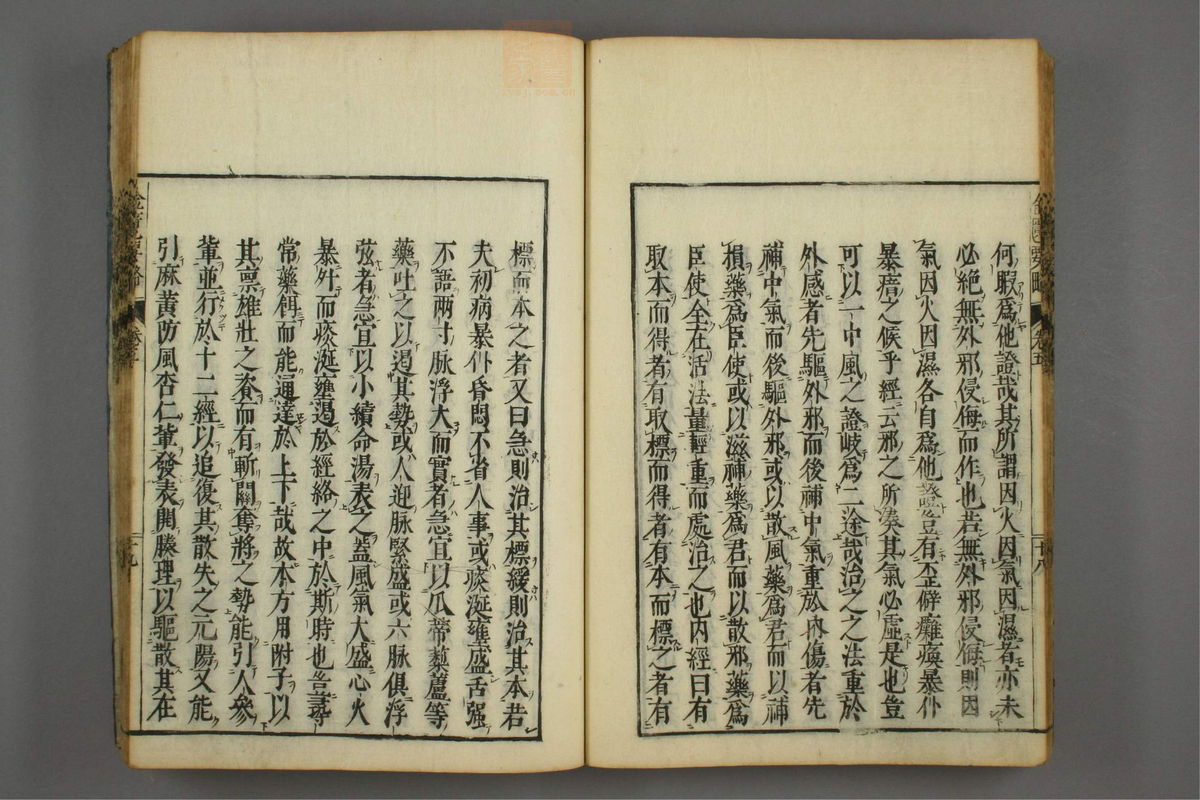 何暇爲他證哉其所謂因火因氣因濕者亦未
必絶無外邪侵侮而作也若無外邪侵侮則因
氣因火因濕各自爲他證豈有歪僻癱瘓暴仆
暴瘖之候乎經云邪之所湊其氣必虛是也豈
可以一中風之證岐爲二途哉治之之法重於
外感者先驅外邪而後補中氣重於內傷者先
補中氣而後驅外邪或以散風藥爲君而以補
損藥爲臣使或以滋補藥爲君而以散邪藥爲
臣使全在活法量輕重而處治之也內經曰有
取本而得者有取標而得者有本而標之者有
標而本之者又曰急則治其標緩則治其本若
夫初病暴仆昏悶不省人事或痰涎壅盛舌强
不語兩寸脉浮大而實者急宜以瓜蒂藜蘆等
藥吐之以遏其勢或人迎脉緊盛或六脉俱浮
弦者急宜以小續命湯表之蓋風氣大盛心火
暴升而痰涎壅遏於經絡之中於斯時也豈尋
常藥餌而能通達於上下哉故本方用附子以
其禀雄壯之資而有斬關奪將之勢能引人參
軰並行於十二經以追復其散失之元陽又能
引麻黃防風杏仁軰發表開腠理以驅散其在